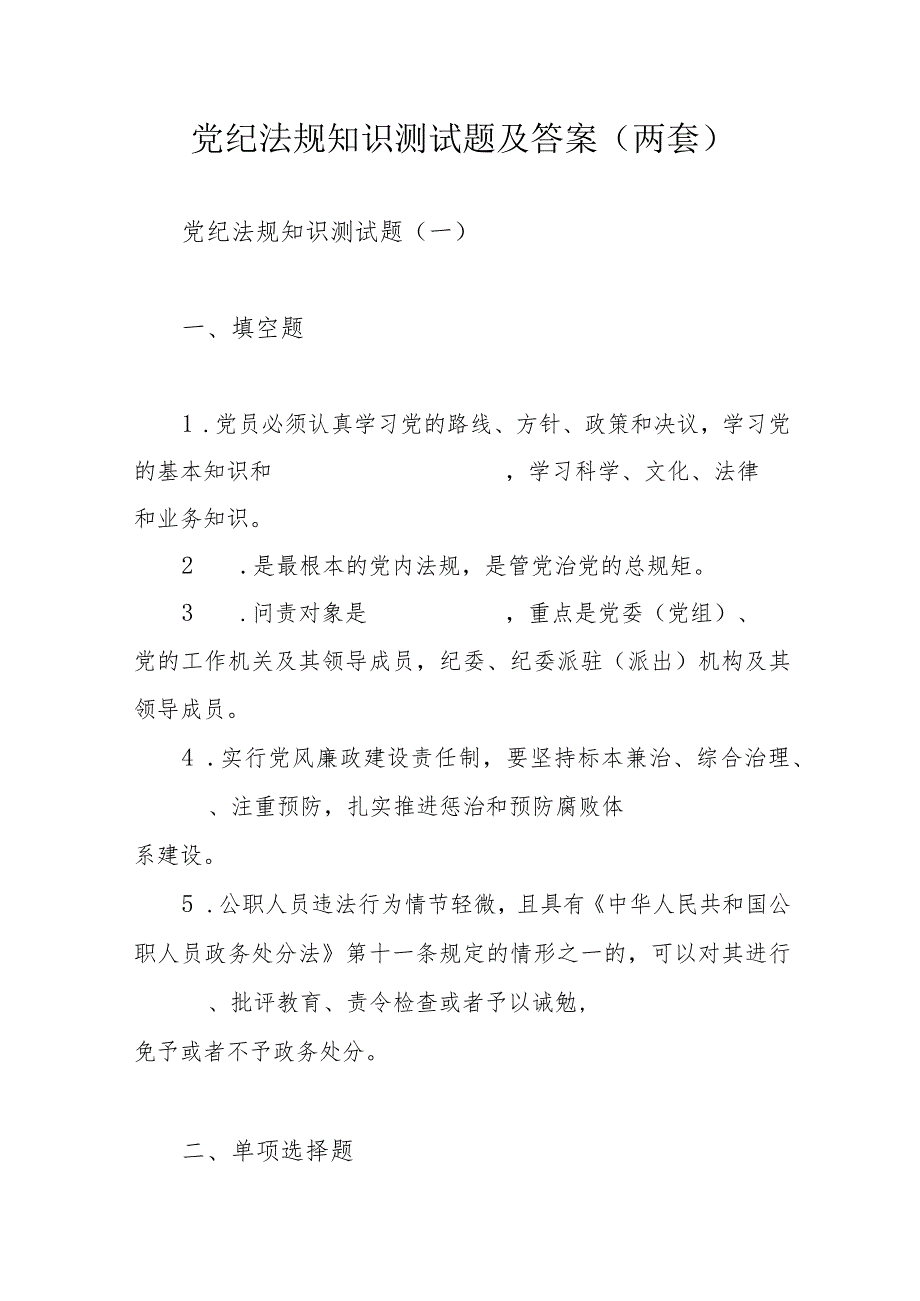 党纪法规知识测试题及答案（两套）
党纪法规知识测试题（一）
一、填空题
1 .党员必须认真学习党的路线、方针、政策和决议，学习党
的基本知识和 ，学习科学、文化、法律
和业务知识。
2 .是最根本的党内法规，是管党治党的总规矩。
3 .问责对象是 ，重点是党委（党组）、
党的工作机关及其领导成员，纪委、纪委派驻（派出）机构及其
领导成员。
4 .实行党风廉政建设责任制，要坚持标本兼治、综合治理、
、注重预防，扎实推进惩治和预防腐败体
系建设。
5 .公职人员违法行为情节轻微，且具有《中华人民共和国公
职人员政务处分法》第十一条规定的情形之一的，可以对其进行
、批评教育、责令检查或者予以诫勉，
免予或者不予政务处分。
二、单项选择题